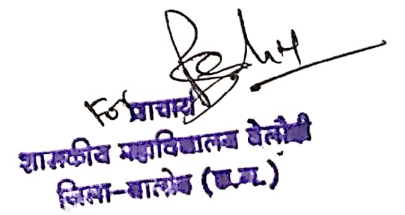 For प्राचार्य
शासकीय महाविद्यालय बेलौदी
जिला-बालोद (छ.ग.)